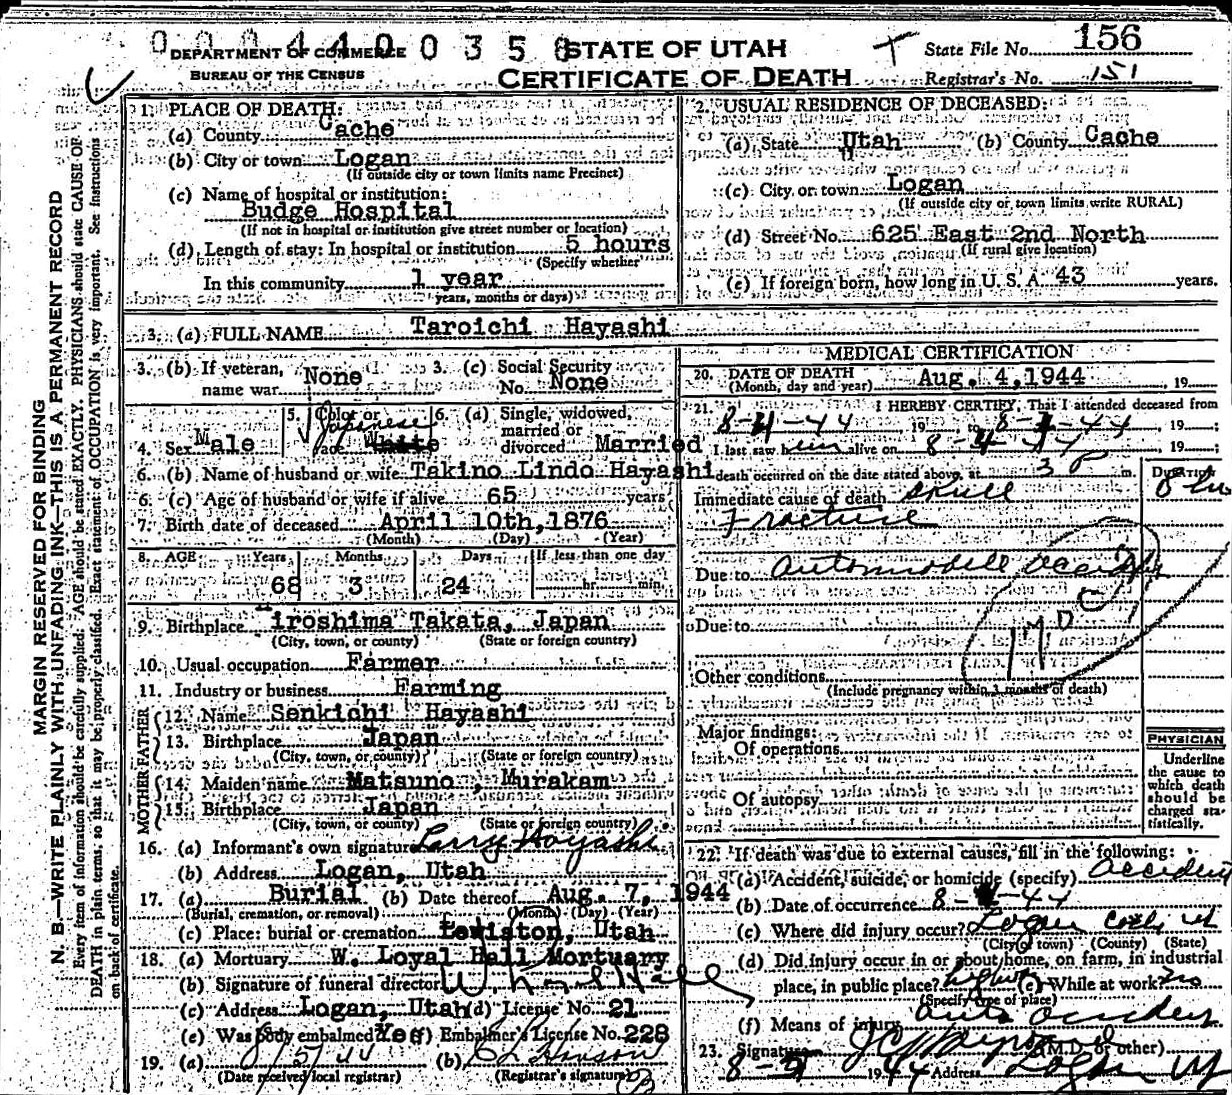 0004400350
DEPARTMENT OF COMMERCE
BUREAU OF THE CENSUS
STATE OF UTAH
CERTIFICATE OF DEATH
State File No. 156
Registrar's No. 151
MARGIN RESERVED FOR BINDING
N. B.—WRITE PLAINLY WITH UNFADING INK—THIS IS A PERMANENT RECORD
Every item of information should be carefully supplied. AGE should be stated EXACTLY. PHYSICIANS should state CAUSE OF
DEATH in plain terms, so that it may be properly classified. Exact statement of OCCUPATION is very important. See instructions
on back of certificate.
1. PLACE OF DEATH:
(a) County Cache
(b) City or town Logan
(If outside city or town limits name Precinct)
(c) Name of hospital or institution:
Budge Hospital
(If not in hospital or institution give street number or location)
(d) Length of stay: In hospital or institution 5 hours
(Specify whether
In this community 1 year
years, months or days)
2. USUAL RESIDENCE OF DECEASED:
(a) State Utah (b) County Cache
(c) City or town Logan
(If outside city or town limits write RURAL)
(d) Street No. 625 East 2nd North
(If rural give location)
(e) If foreign born, how long in U. S. A. 43 years.
3. (a) FULL NAME Taroichi Hayashi
3. (b) If veteran, name war None
3. (c) Social Security No. None
4. Sex Male
5. Color or race Japanese White
6. (a) Single, widowed, married or divorced Married
6. (b) Name of husband or wife Takino Lindo Hayashi
6. (c) Age of husband or wife if alive 65 years
7. Birth date of deceased April 10th, 1876
(Month) (Day) (Year)
8. AGE Years Months Days If less than one day
68 3 24 hr. min.
9. Birthplace Hiroshima Takata, Japan
(City, town, or county) (State or foreign country)
10. Usual occupation Farmer
11. Industry or business Farming
FATHER
12. Name Senkichi Hayashi
13. Birthplace Japan
(City, town, or county) (State or foreign country)
MOTHER
14. Maiden name Matsuno , Murakam
15. Birthplace Japan
(City, town, or county) (State or foreign country)
16. (a) Informant's own signature Larry Hayashi
(b) Address Logan, Utah
17. (a) Burial (b) Date thereof Aug. 7, 1944
(Burial, cremation, or removal) (Month) (Day) (Year)
(c) Place: burial or cremation Lewiston, Utah
18. (a) Mortuary W. Loyal Hall Mortuary
(b) Signature of funeral director W. Loyal Hall
(c) Address Logan, Utah (d) License No. 21
(e) Was body embalmed Yes (f) Embalmer's License No. 228
19. (a) 8/5/44 (b)
(Date received local registrar) (Registrar's signature)
MEDICAL CERTIFICATION
20. DATE OF DEATH
(Month, day and year) Aug. 4, 1944, 19
21. I HEREBY CERTIFY, That I attended deceased from
8-4-44 19 to 8-4-44, 19 ;
I last saw him alive on 8-4-44, 19 ;
death occurred on the date stated above, at 3 P m.
Duration
Immediate cause of death skull
Fracture
Due to Automobile accident
Due to
Other conditions
(Include pregnancy within 3 months of death)
Major findings:
Of operations
Of autopsy
PHYSICIAN
Underline the cause to which death should be charged statistically.
22. If death was due to external causes, fill in the following:
(a) Accident, suicide, or homicide (specify) Accident
(b) Date of occurrence 8-4-44
(c) Where did injury occur? Logan Cache Ut
(City or town) (County) (State)
(d) Did injury occur in or about home, on farm, in industrial
place, in public place? highway (e) While at work? no
(Specify type of place)
(f) Means of injury auto accident
23. Signature (M.D. or other)
8-4 1944 Address Logan Ut